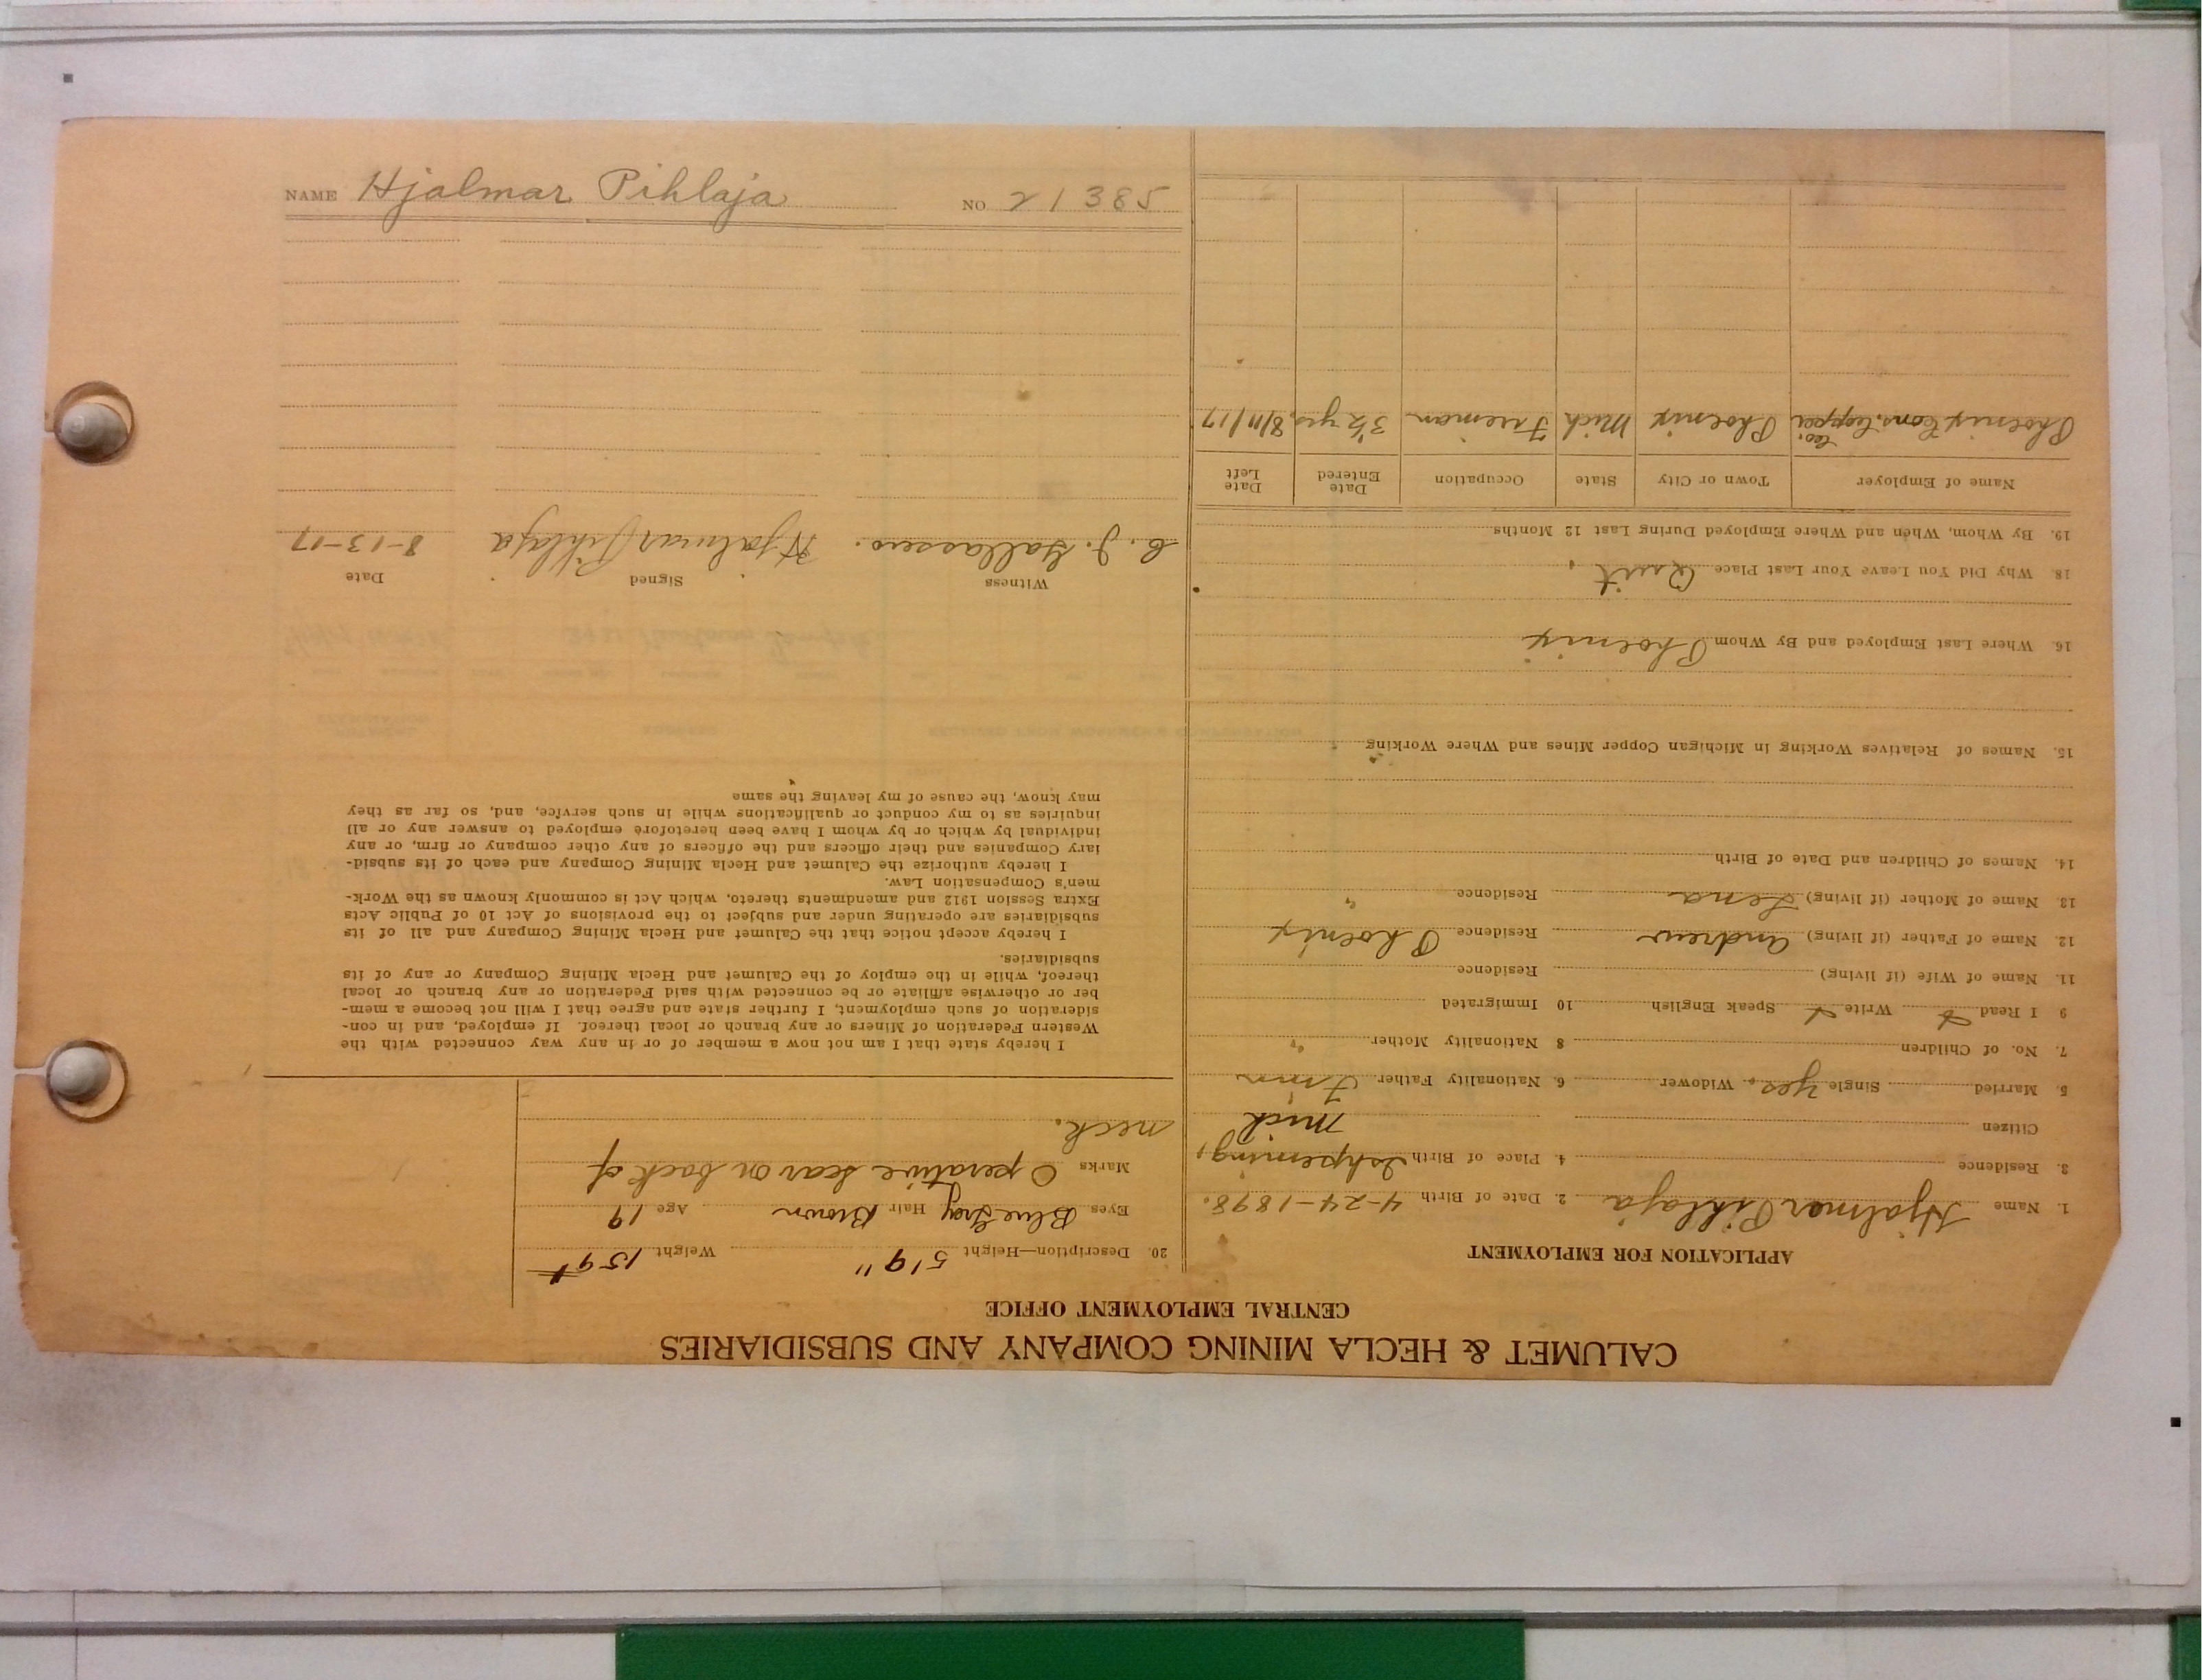 CALUMET & HECLA MINING COMPANY AND SUBSIDIARIES
CENTRAL EMPLOYMENT OFFICE
APPLICATION FOR EMPLOYMENT
1. Name Hjalmar Pihlaja 2. Date of Birth 4-24-1898.
3. Residence 4. Place of Birth Ishpeming,
Citizen Mich
5. Married Single Yes. Widower 6. Nationality Father Finn
7. No. of Children 8 Nationality Mother "
9 I Read Write Speak English 10 Immigrated
11. Name of Wife (if living) Residence
12. Name of Father (if living) Andrew Residence Phoenix
13. Name of Mother (if living) Lena Residence "
14. Names of Children and Date of Birth
15. Names of Relatives Working in Michigan Copper Mines and Where Working
16. Where Last Employed and By Whom Phoenix
18. Why Did You Leave Your Last Place Quit
19. By Whom, When and Where Employed During Last 12 Months
Name of Employer Town or City State Occupation Date Entered Date Left
Phoenix Cons. Copper Co. Phoenix Mich Fireman 3½ yrs. 8/11/17
20. Description—Height 5'9" Weight 159#
Eyes Blue Gray Hair Brown Age 19
Marks Operative scar on back of
neck.
I hereby state that I am not now a member of or in any way connected with the
Western Federation of Miners or any branch or local thereof. If employed, and in con-
sideration of such employment, I further state and agree that I will not become a mem-
ber or otherwise affiliate or be connected with said Federation or any branch or local
thereof, while in the employ of the Calumet and Hecla Mining Company or any of its
subsidiaries.
I hereby accept notice that the Calumet and Hecla Mining Company and all of its
subsidiaries are operating under and subject to the provisions of Act 10 of Public Acts
Extra Session 1912 and amendments thereto, which Act is commonly known as the Work-
men's Compensation Law.
I hereby authorize the Calumet and Hecla Mining Company and each of its subsid-
iary Companies and their officers and the officers of any other company or firm, or any
individual by which or by whom I have been heretofore employed to answer any or all
inquiries as to my conduct or qualifications while in such service, and, so far as they
may know, the cause of my leaving the same
Witness Signed Date
C. J. Hjalmar Pihlaja 8-13-17
NAME Hjalmar Pihlaja NO 21385